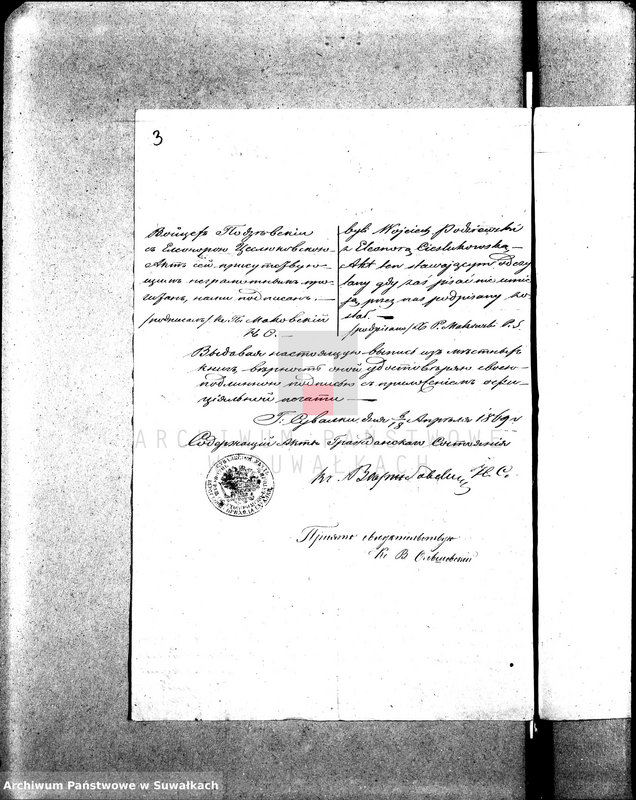 3
Войцех Подзѣвскій
съ Елеонорою Цеслюковскою
Актъ сей присутствую-
щимъ неграмотнымъ про-
читанъ, нами подписанъ. —
/подписалъ/ кс. П. Маковскій
Н. С. —
był: Wojciech Podziewski
z Eleonorą Cieslukowską —
Akt ten stawającym odczy-
tany gdy zaś pisać nie umie-
ją przez nas podpisany zo-
stał. —
/podpisano/ X P. Makowski P. S.
Выдавая настоящую выпись изъ мѣстныхъ
книгъ, вѣрность оной удостовѣряю свое-
подлинною подписью съ приложеніемъ оффи-
ціальной печати —
Г. Сувалки, дня 6/18 Апрѣля 1869 г.
Содержащій Акты Гражданскаго Состоянія
кс. Н. С.
Принято свидѣтельствую
Кс В Ольшевскій
ARCHIWUM PAŃSTWOWE
W SUWAŁKACH
Archiwum Państwowe w Suwałkach